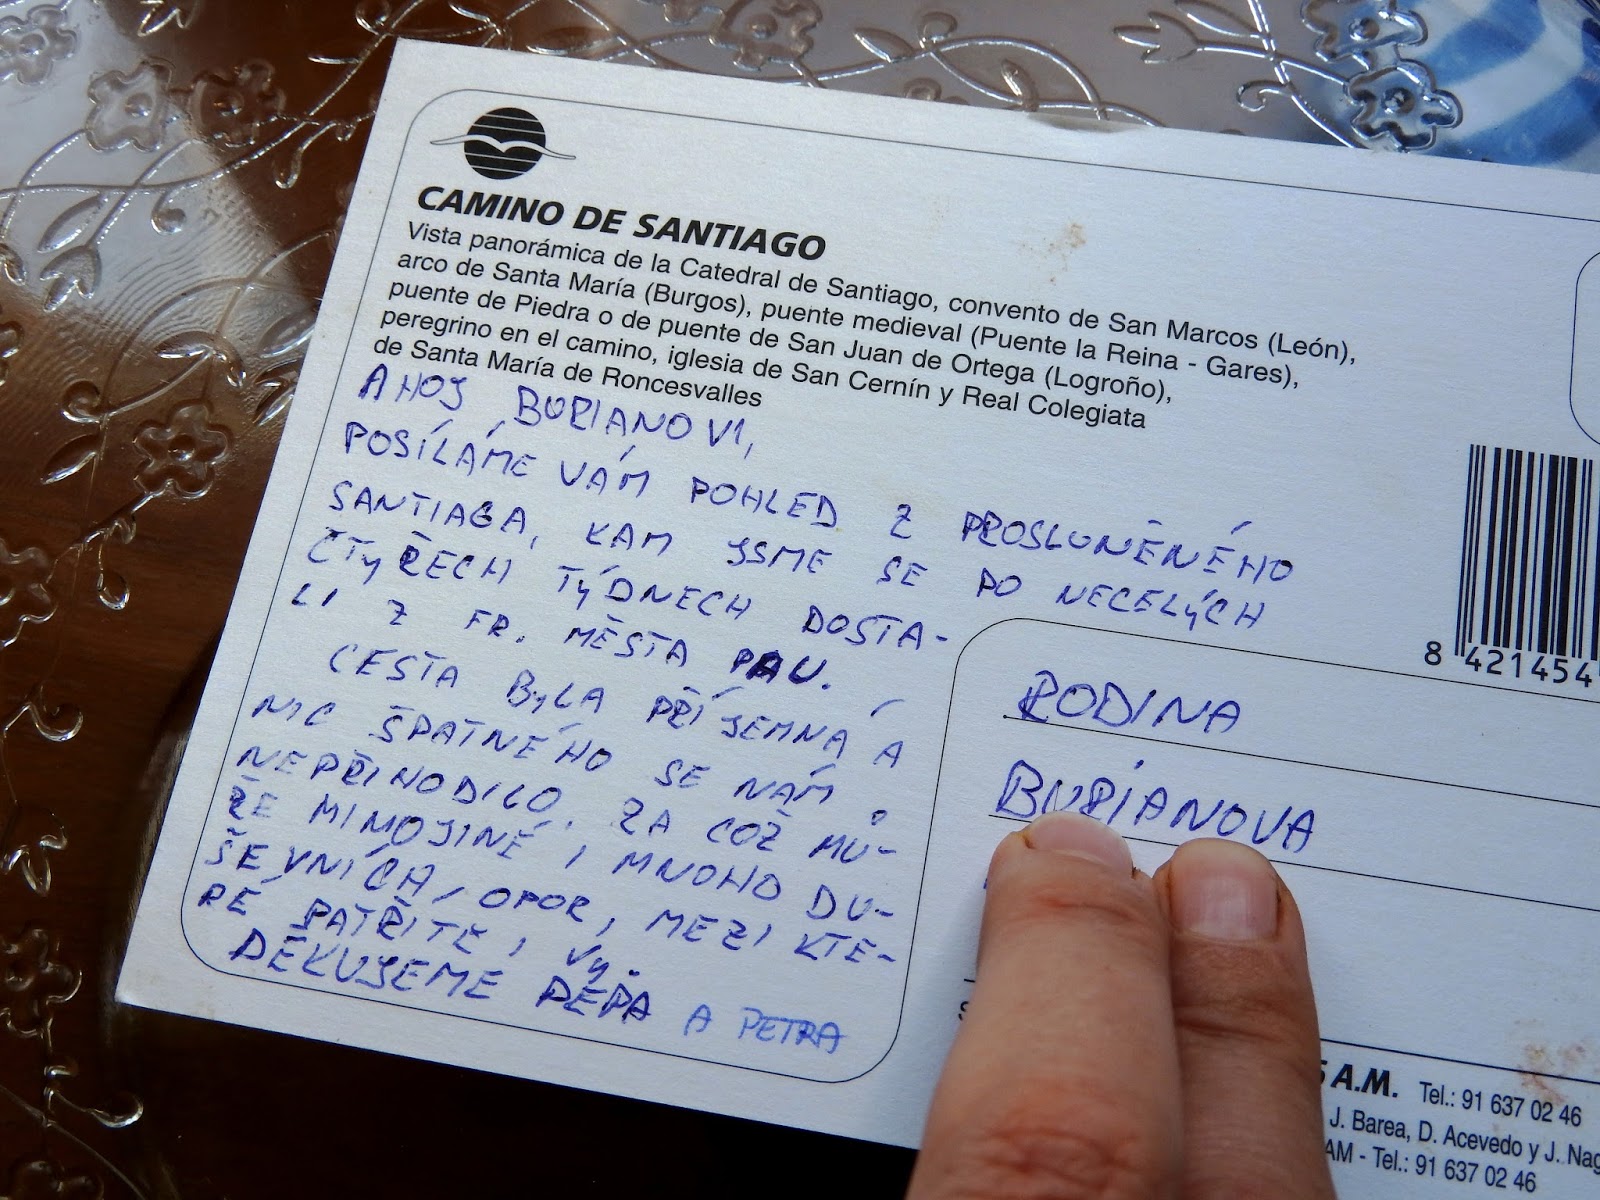 CAMINO DE SANTIAGO
Vista panorámica de la Catedral de Santiago, convento de San Marcos (León),
arco de Santa María (Burgos), puente medieval (Puente la Reina - Gares),
puente de Piedra o de puente de San Juan de Ortega (Logroño),
peregrino en el camino, iglesia de San Cernín y Real Colegiata
de Santa María de Roncesvalles
AHOJ BURIÁNOVI,
POSÍLÁME VÁM POHLED Z PROSLUNĚNÉHO
SANTIAGA, KAM JSME SE PO NECELÝCH
ČTYŘECH TÝDNECH DOSTA-
LI Z FR. MĚSTA PAU.
CESTA BYLA PŘÍJEMNÁ A
NIC ŠPATNÉHO SE NÁM
NEPŘIHODILO. ZA COŽ MŮ-
ŽE MIMOJINÉ I MNOHO DU-
ŠEVNÍCH OPOR, MEZI KTE-
RÉ PATŘÍTE I VY.
DĚKUJEME PEPA A PETRA
8 421454
RODINA
BURIÁNOVA
A.M. Tel.: 91 637 02 46
J. Barea, D. Acevedo y J.
AM - Tel.: 91 637 02 46